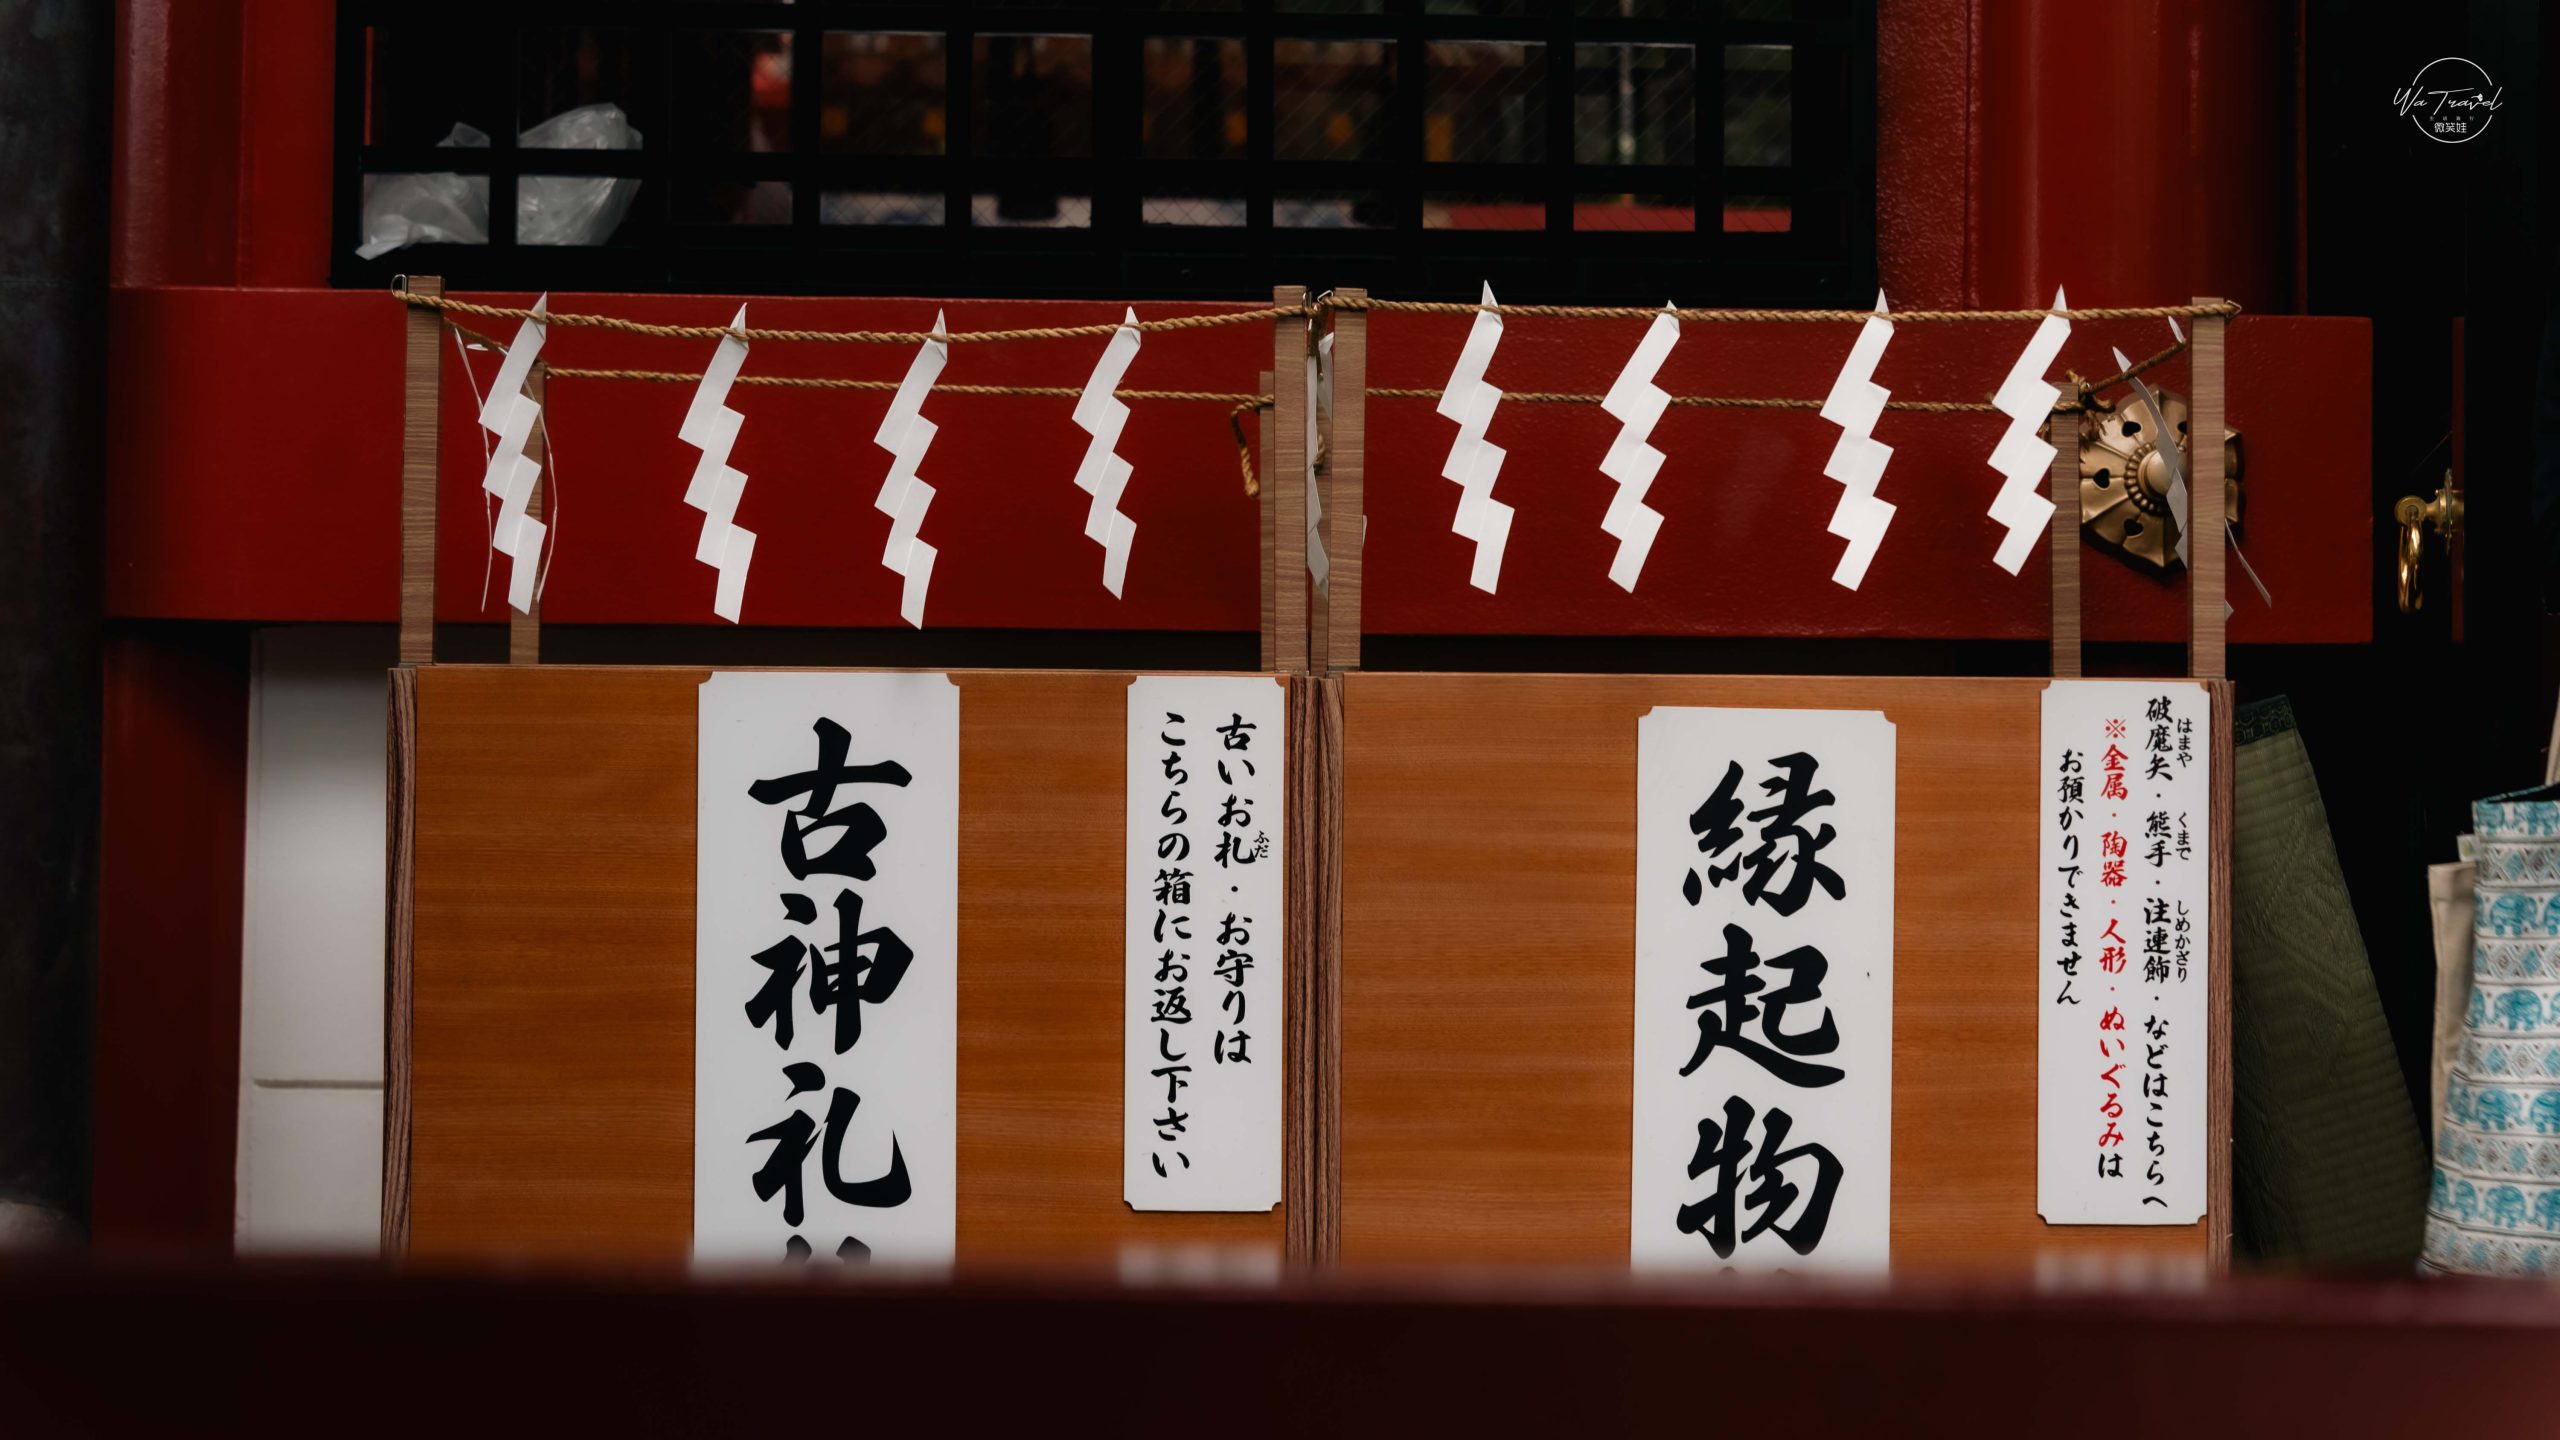 Wa Travel
微笑娃
古神札
古いお札・お守りは
ふだ
こちらの箱にお返し下さい
縁起物
破魔矢・熊手・注連飾・などはこちらへ
はまや
くまで
しめかざり
※金属・陶器・人形・ぬいぐるみは
お預かりできません